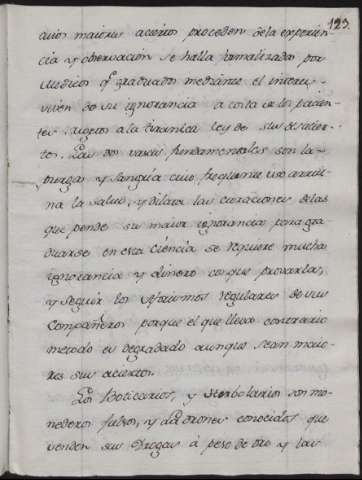 123.
cuios maiores aciertos proceden de la experien-
cia y observacion se halla tiranalizada por
Medicos q.e graduados mediante el interes,
viven de su ignorancia a costa de los pacien-
tes, sugetos a la tiranica ley de sus desacier-
tos. Las dos vases fundamentales son la
purga y sangria cuio frequente uso arrui-
na la salud, y dilata las curaciones de las
que pende su maior ignorancia para gra-
duarse en esta ciencia se requiere mucha
ignorancia y dinero con que provarla,
y seguir los Aforismos regulares de sus
compañeros porque el que lleva contrario
metodo es degradado aunque sean maio-
res sus aciertos.
Los Boticarios, y Herbolarios son mo-
nederos falsos, y Ladrones conocidos que
venden sus Drogas á peso de oro y las